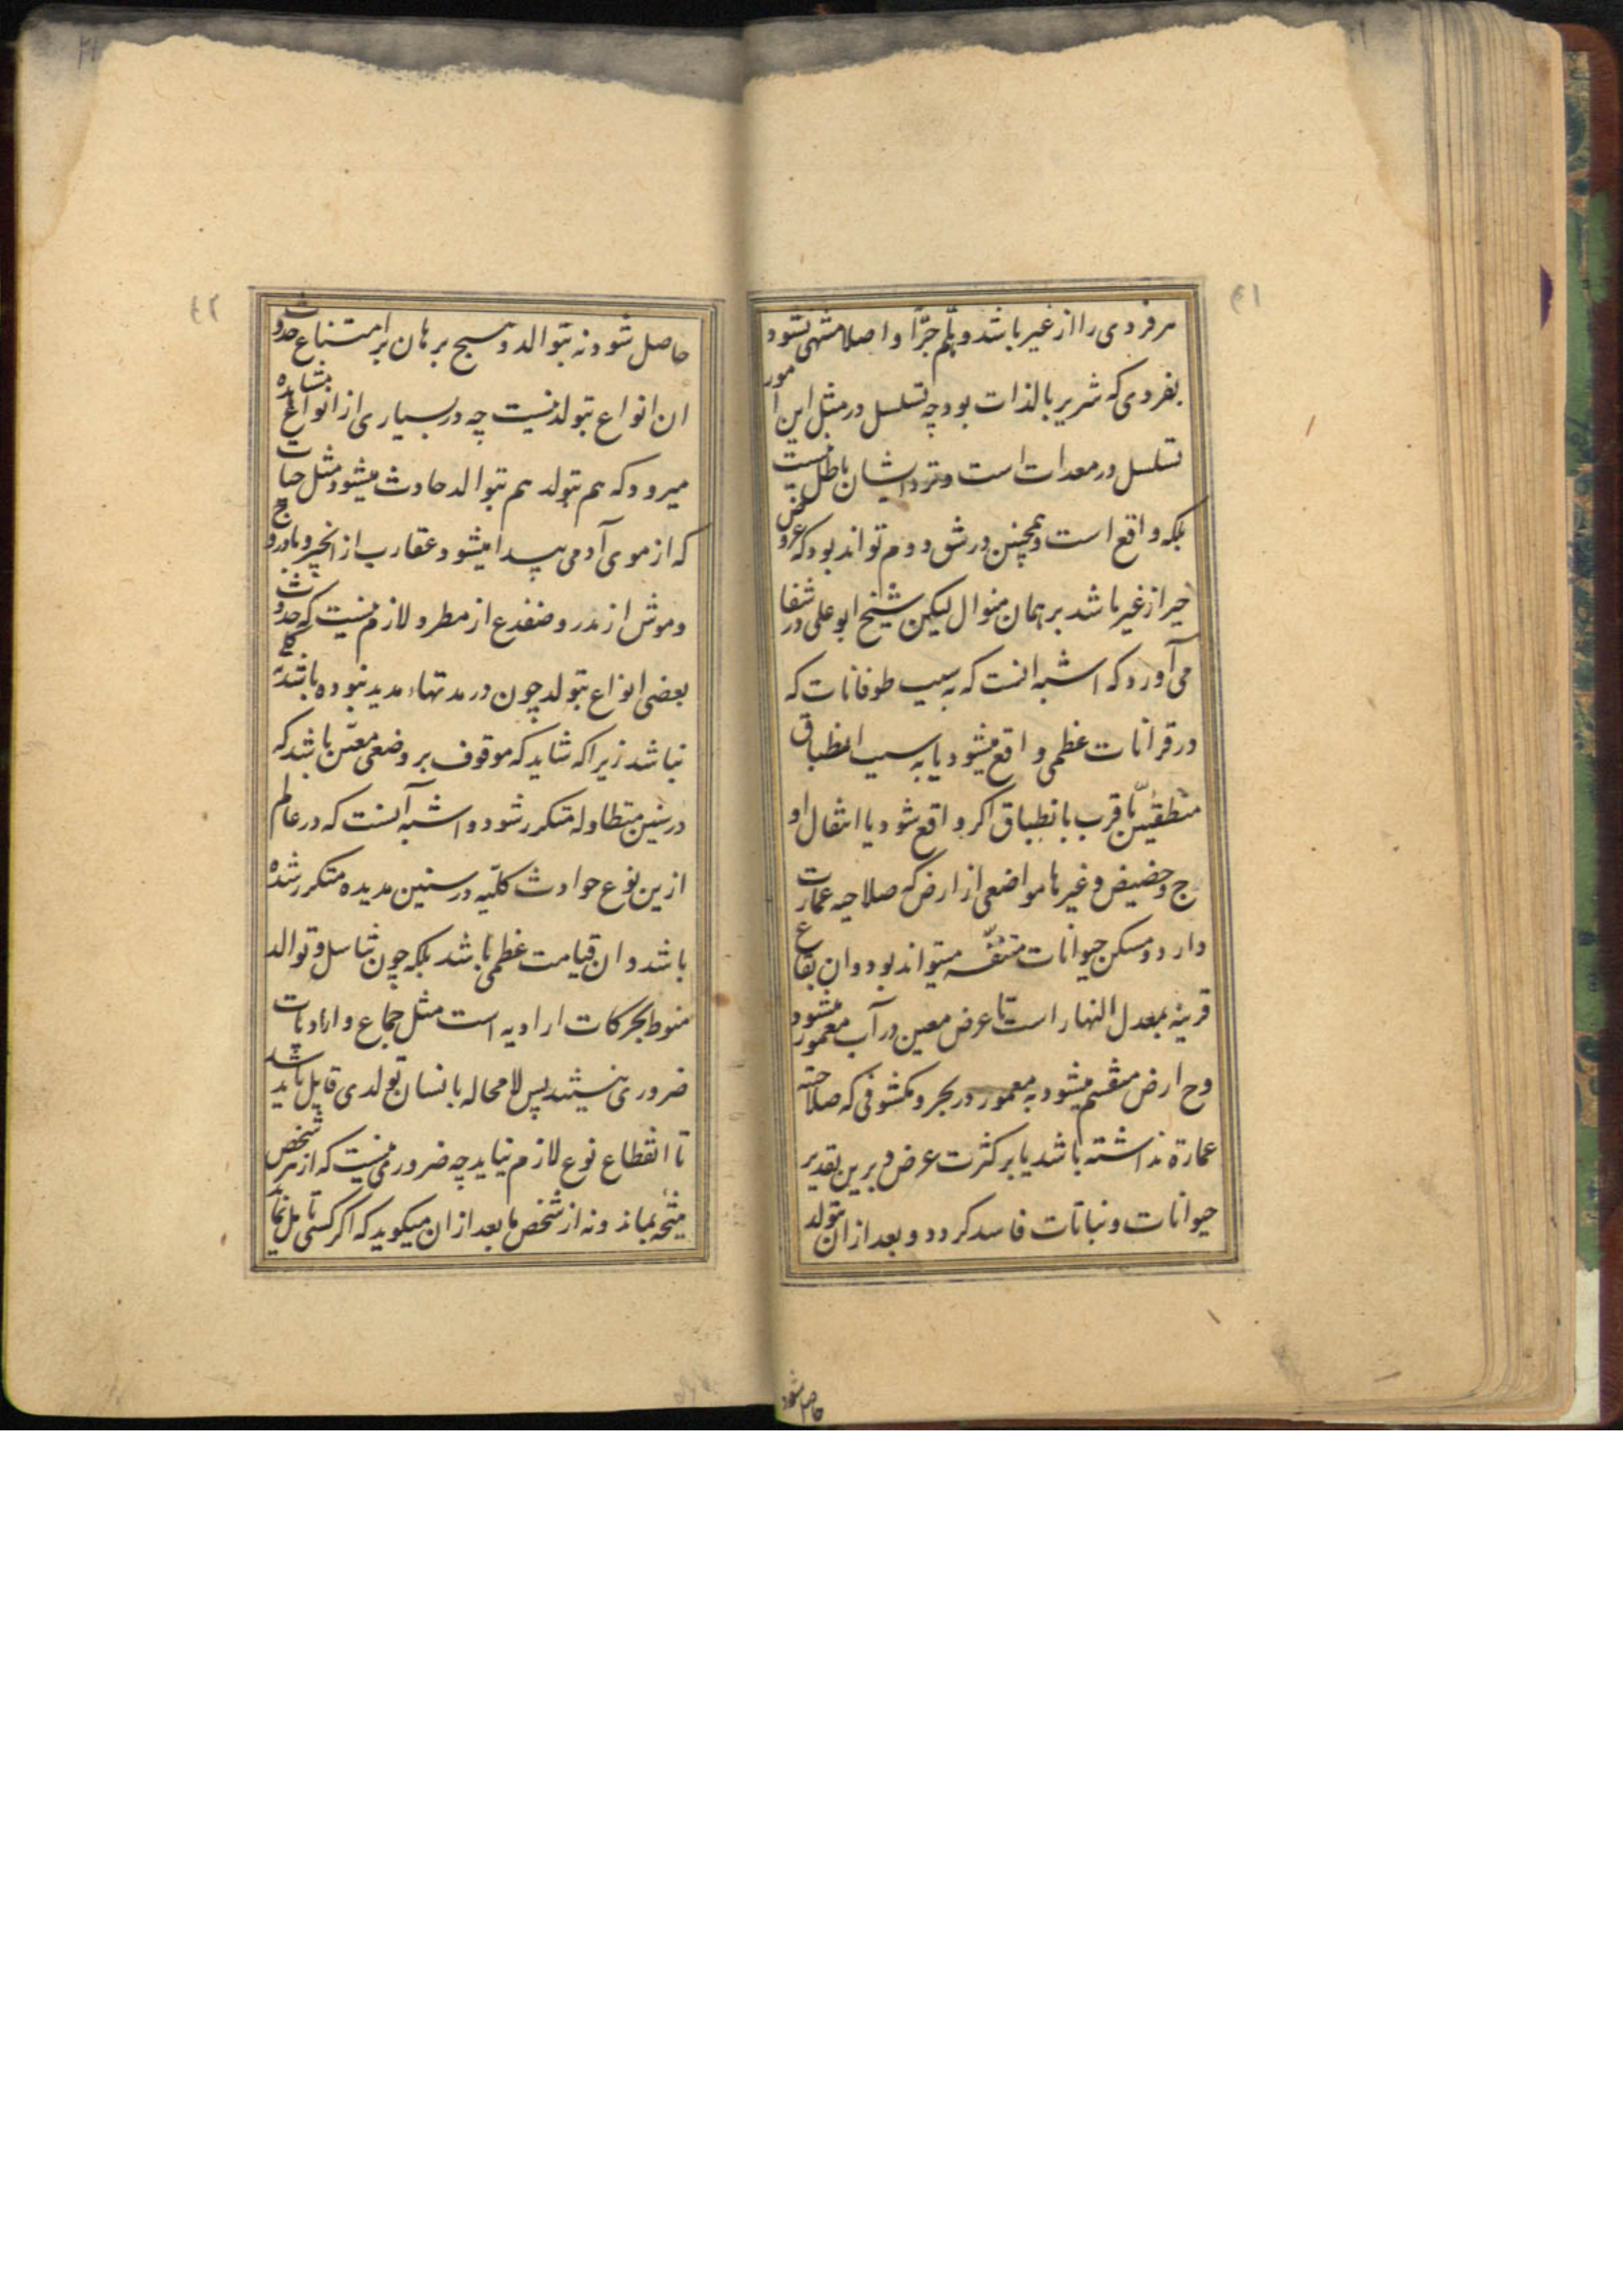 ٤١
هر فردی را از غیر باشد و هلم جرّا و اصلا منتهی نشود
بفردی که شریر بالذات بود چه تسلسل در مثل این امور
تسلسل در معدات است و نزد ایشان باطل نیست
بلکه واقع است و همچنین در شق دوم تواند بود که عروض
خیر از غیر باشد بر همان منوال لیکن شیخ ابو علی در شفا
می آورد که اشبه انست که به سبب طوفانات که
در قرانات عظمی واقع میشود یا به سبب انطباق
منطقتین یا قرب بانطباق اکر واقع شود یا انتقال او
ج و حضیض و غیرها مواضعی از ارض که صلاحیه عمارت
دارد و مسکن حیوانات متنفّسه میتواند بود و ان بقاع
قریبه بمعدل النهار است تا عرض معین در آب معمور میشود
وح ارض منقسم میشود به معمور در بحر و مکشوفی که صلاحیته
عمارة نداشته باشد یا بر کثرت عرض و برین تقدیر
حیوانات و نباتات فاسد کردد و بعد از ان بتولد
حاصل شود
٤٢
حاصل شود نه بتوالد و هیچ برهان بر امتناع حدوث
ان انواع بتولد نیست چه در بسیاری از انواع مشاهده
میرود که هم بتولد هم بتوالد حادث میشود مثل حیات
که از موی آدمی پیدا میشود و عقارب از انجیر و بادروج
و موش از مدر و ضفدع از مطر و لازم نیست که حدوث
بعضی انواع بتولد چون در مدتهاء مدید نبوده باشد
نباشد زیرا که شاید که موقوف بر وضعی معیّن باشد که
در سنین متطاوله متکرر شود و اشبه آنست که در عالم
ازین نوع حوادث کلّیه در سنین مدیده متکرر شده
باشد و ان قیامت عظمی باشد بلکه چون تناسل و توالد
منوط بحرکات ارادیه است مثل جماع و ارادیات
ضروری نیستند پس لا محاله بانسان تولدی قایل باید شد
تا انقطاع نوع لازم نیاید چه ضروری نیست که از هر شخص
نتیجه بماند و نه از شخص ما بعد از ان میکوید که اکر کسی تامل نماید